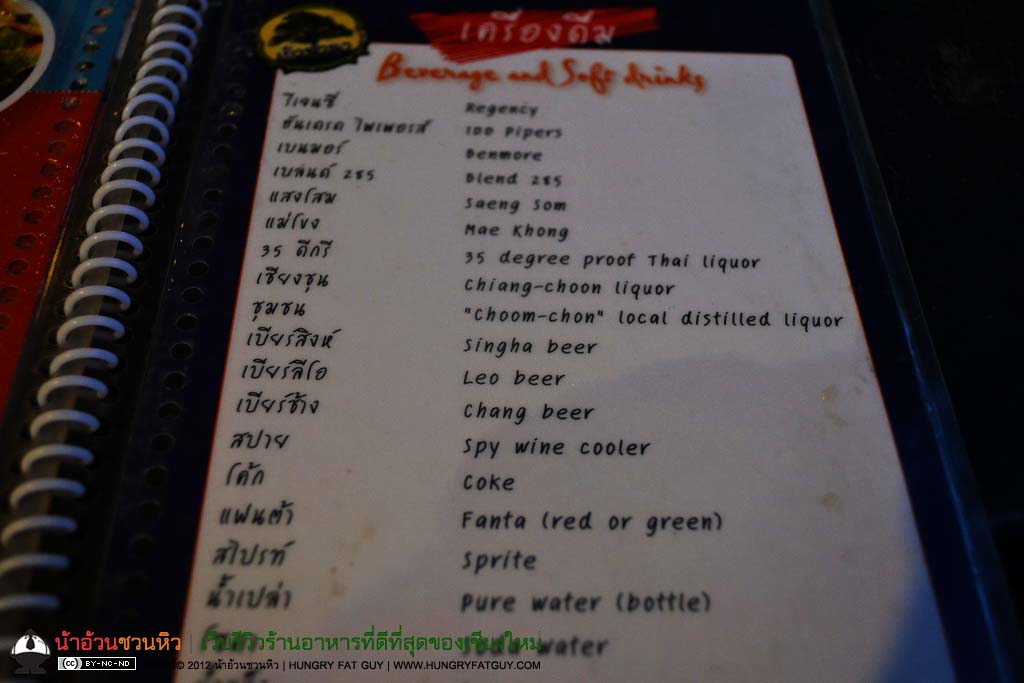 เครื่องดื่ม
Beverage and Soft drinks
รีเจนซี่ Regency
ฮันเดรด ไพเพอร์ส 100 Pipers
เบนมอร์ Benmore
เบล็นด์ 285 Blend 285
แสงโสม Saeng Som
แม่โขง Mae Khong
35 ดีกรี 35 degree proof Thai liquor
เชียงชุน Chiang-choon liquor
ชุมชน "Choom-chon" local distilled liquor
เบียร์สิงห์ Singha beer
เบียร์ลีโอ Leo beer
เบียร์ช้าง Chang beer
สปาย Spy wine cooler
โค้ก Coke
แฟนต้า Fanta (red or green)
สไปรท์ Sprite
น้ำเปล่า Pure water (bottle)
water
น้าอ้วนชวนหิว | เว็บรีวิวร้านอาหารที่ดีที่สุดของเชียงใหม่
(cc) BY-NC-ND © 2012 น้าอ้วนชวนหิว | HUNGRY FAT GUY | WWW.HUNGRYFATGUY.COM